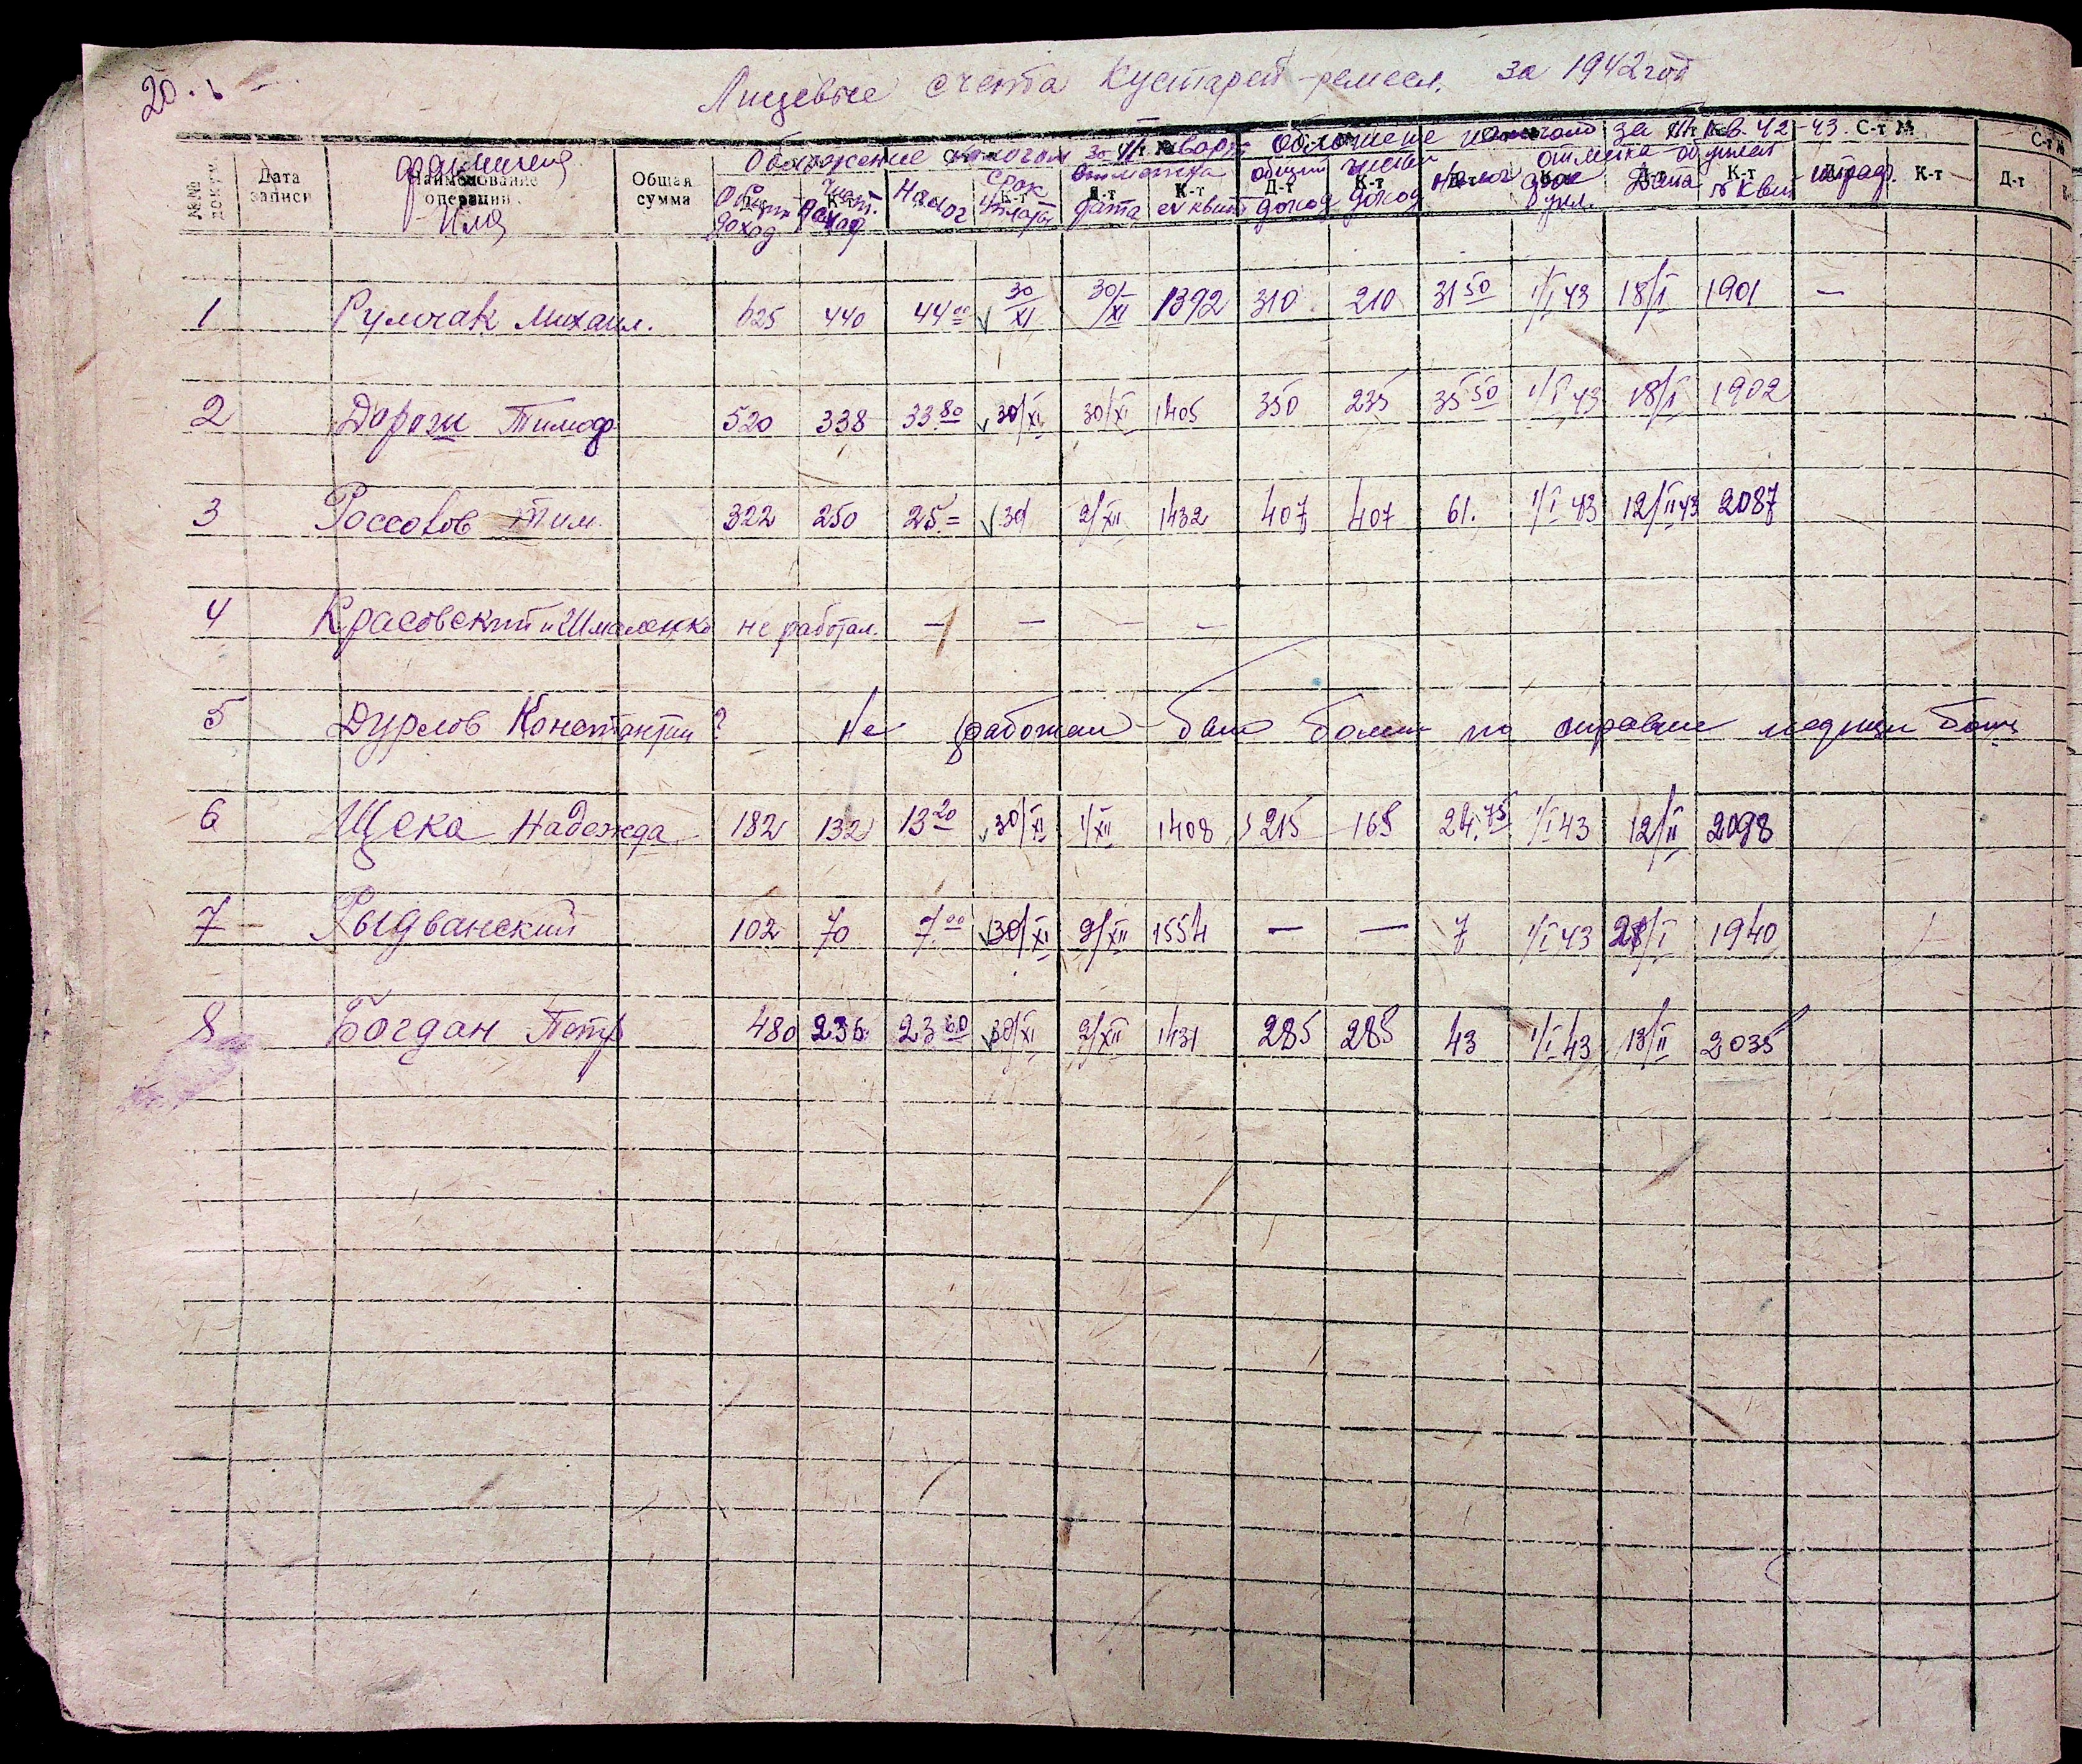 20.
Лицевые счета Кустарей-ремесл. за 1942 год
Обложение налогом за III кварт. Обложение налогом за IV кв. 42-43. С-т № С-т №
№№ докум. Дата записи фамилия Имя Наименование операции Общая сумма Общий доход Чист. доход Налог срок уплаты отметка дата № квит общий доход чистый доход налог срок упл. отметка об уплате Дата № квит штраф К-т Д-т
1 Рулочак Михаил. 625 440 44 00 30/XI 30/XI 1392 310 210 31 50 1/I 43 18/I 1901 —
2 Дорош Тимоф 520 338 33 80 30/XI 30/XI 1405 350 235 35 50 1/I 43 18/I 1902
3 Россолов Тим. 322 250 25 = 30/ 2/XII 1432 407 407 61. 1/I 43 12/II 43 2087
4 Красовский и Шмаленко не работал. — — — —
5 Дурлов Константин ? Не работал - был болен по справке
6 Щека Надежда 182 132 13 20 30/XI 1/XII 1408 215 165 24.75 1/I 43 12/II 2098
7 Рыдванский 102 70 7.00 30/XI 9/XII 1554 — — 7 1/I 43 28/I 1940
8 Богдан Петр 480 236 23 60 30/XI 2/XII 1431 285 285 43 1/I 43 13/II 2035